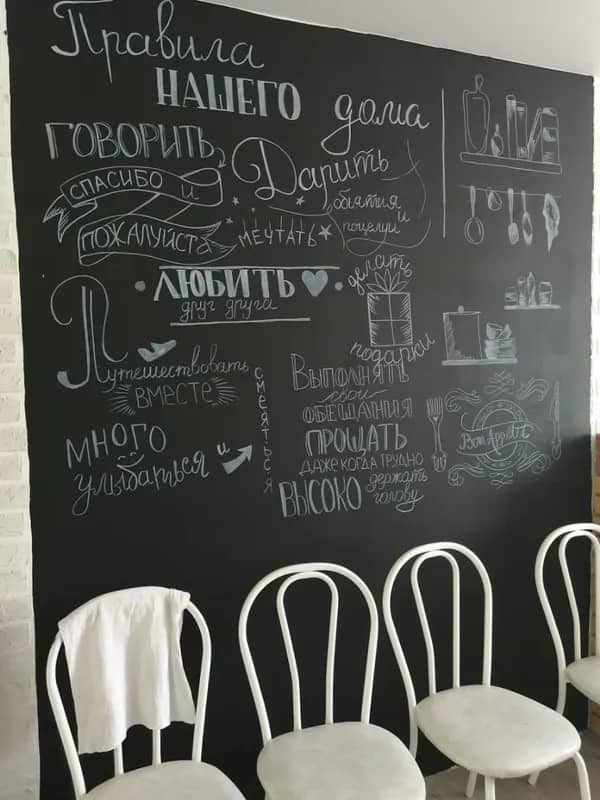 Правила
НАШЕГО
дома
ГОВОРИТЬ
СПАСИБО и
ПОЖАЛУЙСТА
Дарить
объятия
и
поцелуи
МЕЧТАТЬ
ЛЮБИТЬ
друг друга
делать
подарки
Путешествовать
ВМЕСТЕ
МНОГО
улыбаться и
СМЕЯТЬСЯ
ВЫПОЛНЯТЬ
свои
ОБЕЩАНИЯ
ПРОЩАТЬ
ДАЖЕ КОГДА ТРУДНО
ВЫСОКО
держать
голову
Bon Appetit